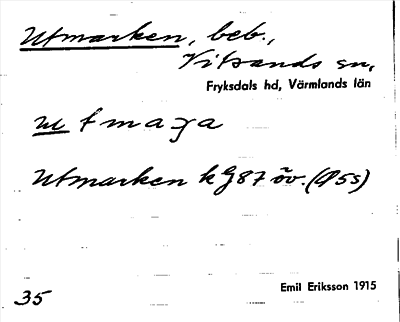 Utmarken, beb.,
Vitsands sn,
Fryksdals hd, Värmlands län
Utmarken k öv.
35
Emil Eriksson 1915